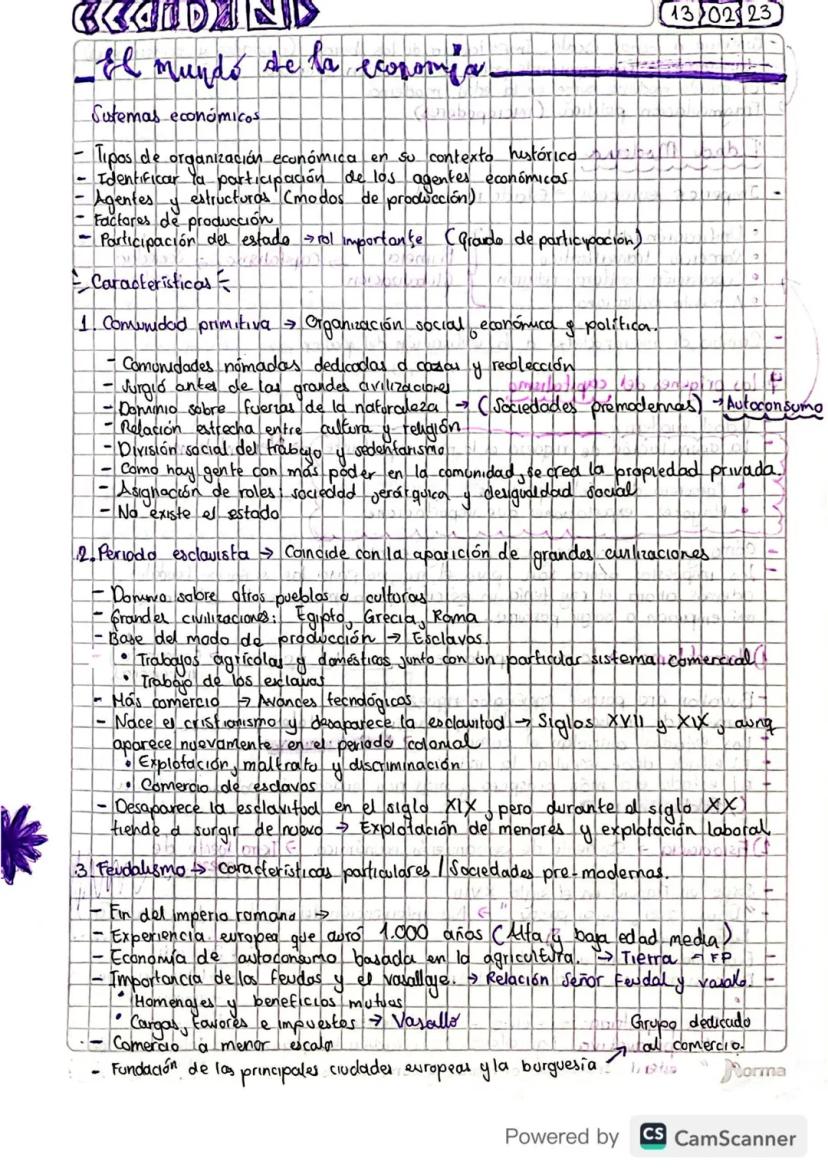 13 02 23
El mundo de la economía
Sistemas económicos
- Tipos de organización económica en su contexto histórico
- Identificar la participación de los agentes económicos
- Agentes y estructuras (modos de producción)
- Factores de producción
- Participación del estado → rol importante (Grado de participación)
- Características -
1. Comunidad primitiva → Organización social, económica y política.
- Comunidades nómadas dedicadas a cazar y recolección
- Surgió antes de las grandes civilizaciones
- Dominio sobre fuerzas de la naturaleza → (Sociedades premodernas) → Autoconsumo
- Relación estrecha entre cultura y religión
- División social del trabajo y sedentarismo
- Como hay gente con más poder en la comunidad, se crea la propiedad privada.
- Asignación de roles: sociedad jerárquica y desigualdad social
- No existe el estado
2. Periodo esclavista → Coincide con la aparición de grandes civilizaciones
- Dominio sobre otros pueblos o culturas
- Grandes civilizaciones: Egipto, Grecia, Roma
- Base del modo de producción → Esclavos.
• Trabajos agrícolas y domésticos junto con un particular sistema comercial
• Trabajo de los esclavos
- Más comercio → Avances tecnológicos
- Nace el cristianismo y desaparece la esclavitud → Siglos XVII y XIX, aunq
aparece nuevamente en el periodo colonial
• Explotación, maltrato y discriminación
• Comercio de esclavos
- Desaparece la esclavitud en el siglo XIX, pero durante el siglo XX
tiende a surgir de nuevo → Explotación de menores y explotación laboral.
3. Feudalismo → Características particulares / Sociedades pre-modernas.
- Fin del imperio romano →
- Experiencia europea que duró 1.000 años (Alta y baja edad media)
- Economía de autoconsumo basada en la agricultura. → Tierra → FP
- Importancia de los feudos y el vasallaje. → Relación Señor Feudal y vasallo.
• Homenajes y beneficios mutuos
• Cargas, favores e impuestos → Vasallo
- Comercio a menor escala
- Fundación de las principales ciudades europeas y la burguesía → Grupo dedicado
al comercio.
Norma
Powered by CS CamScanner